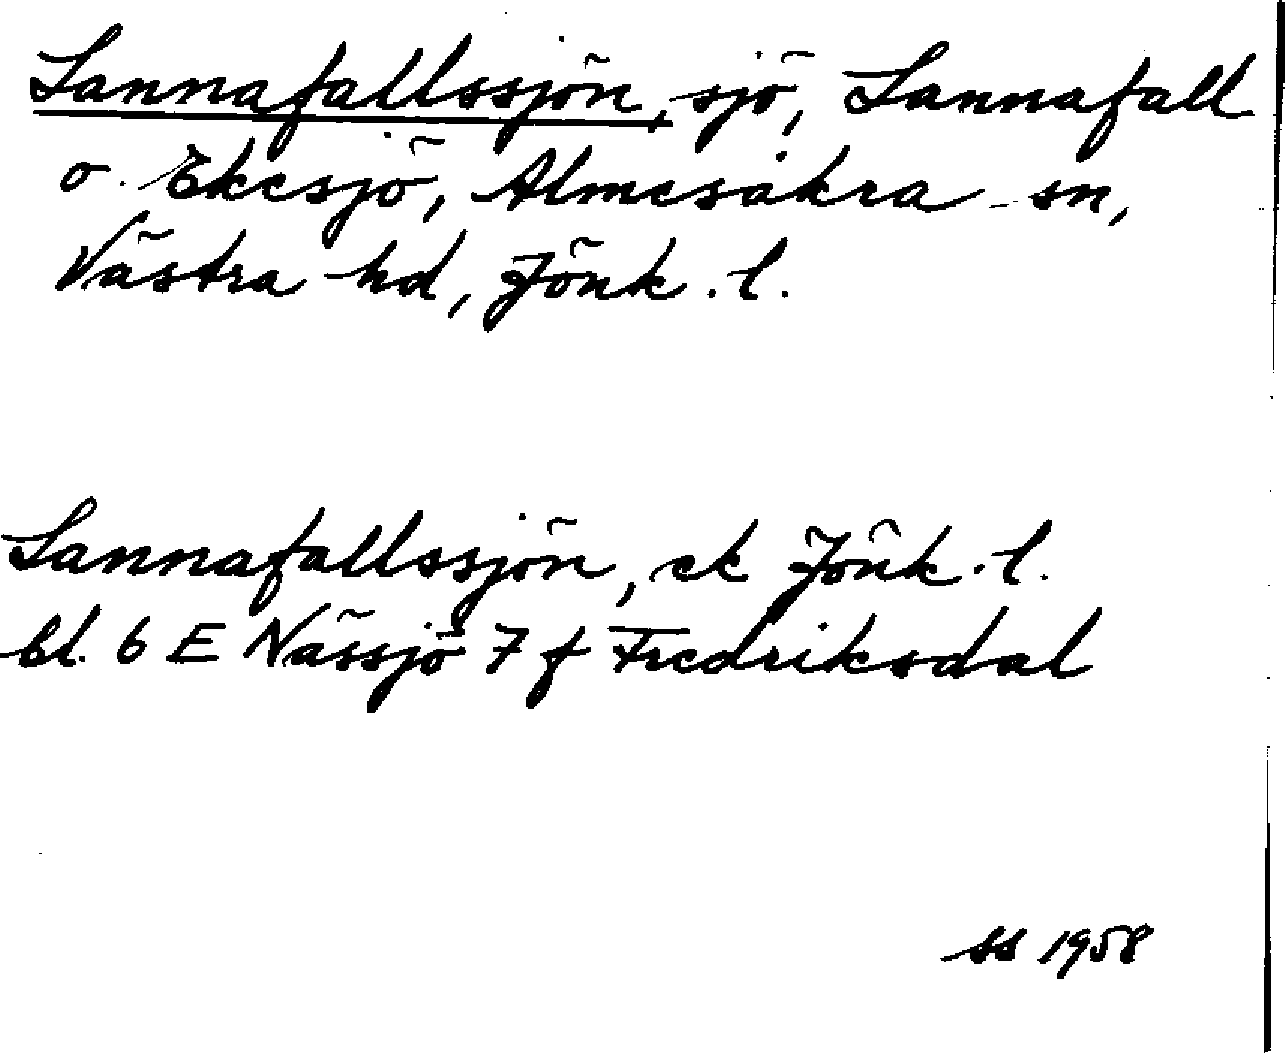 Lannafallssjön, sjö, Lannafall
o. Ekesjö, Almesåkra sn,
Västra hd, Jönk. l.
Lannafallssjön, ek Jönk. l.
bl. 6 E Nässjö 7 f Fredriksdal
SS 1958